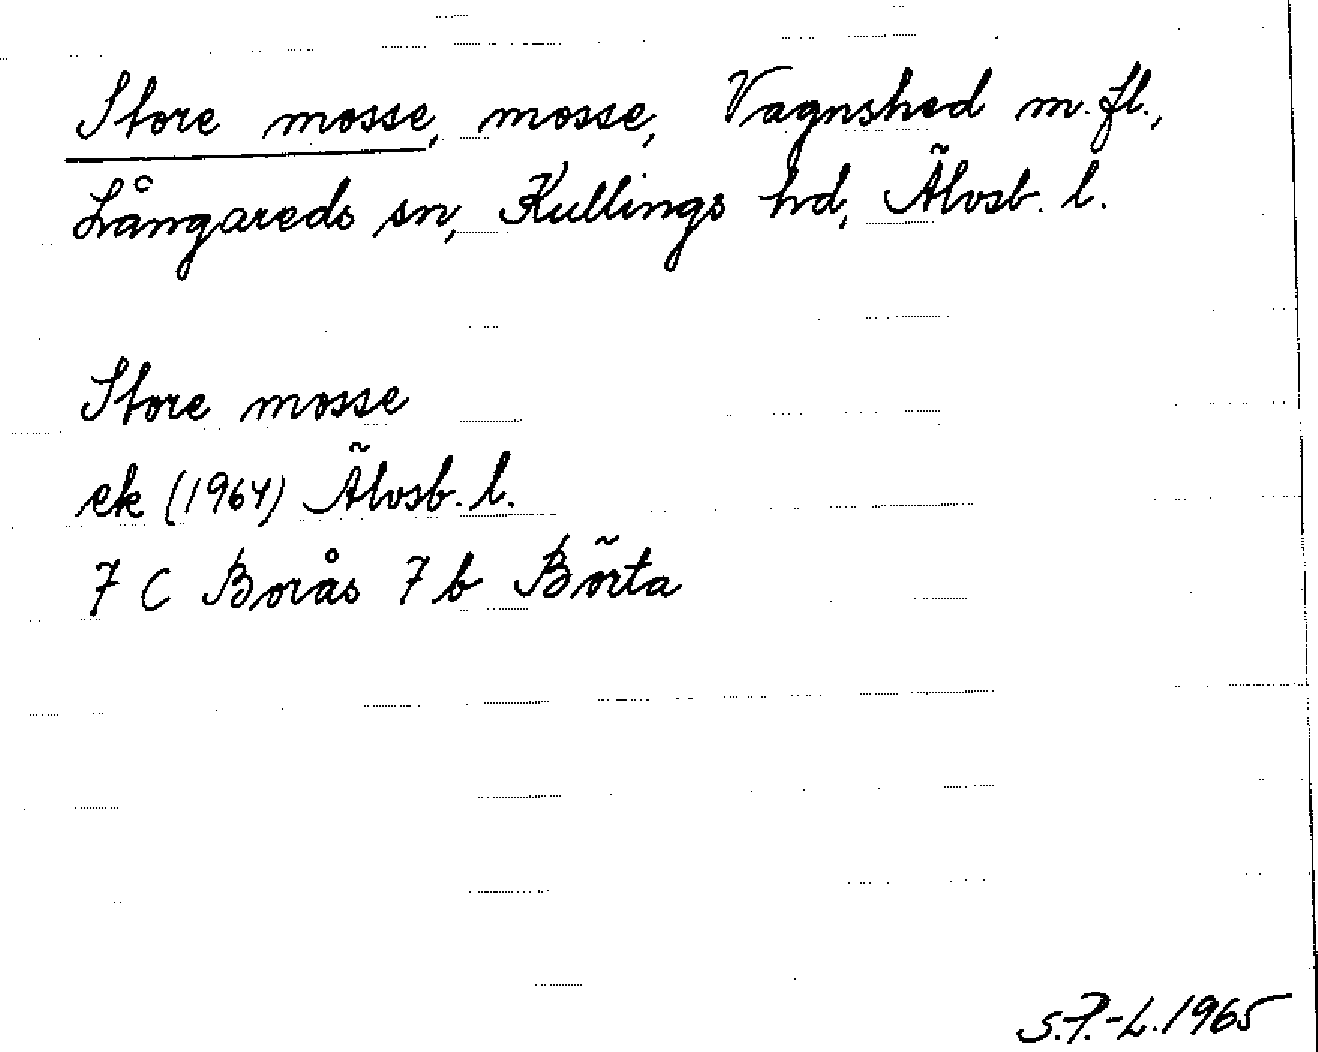 Store mosse, mosse, Vagnshed m.fl.,
Långareds sn, Kullings hd, Älvsb. l.
Store mosse
ek (1964) Älvsb. l.
7 C Borås 7 b Börta
S.P.-L. 1965